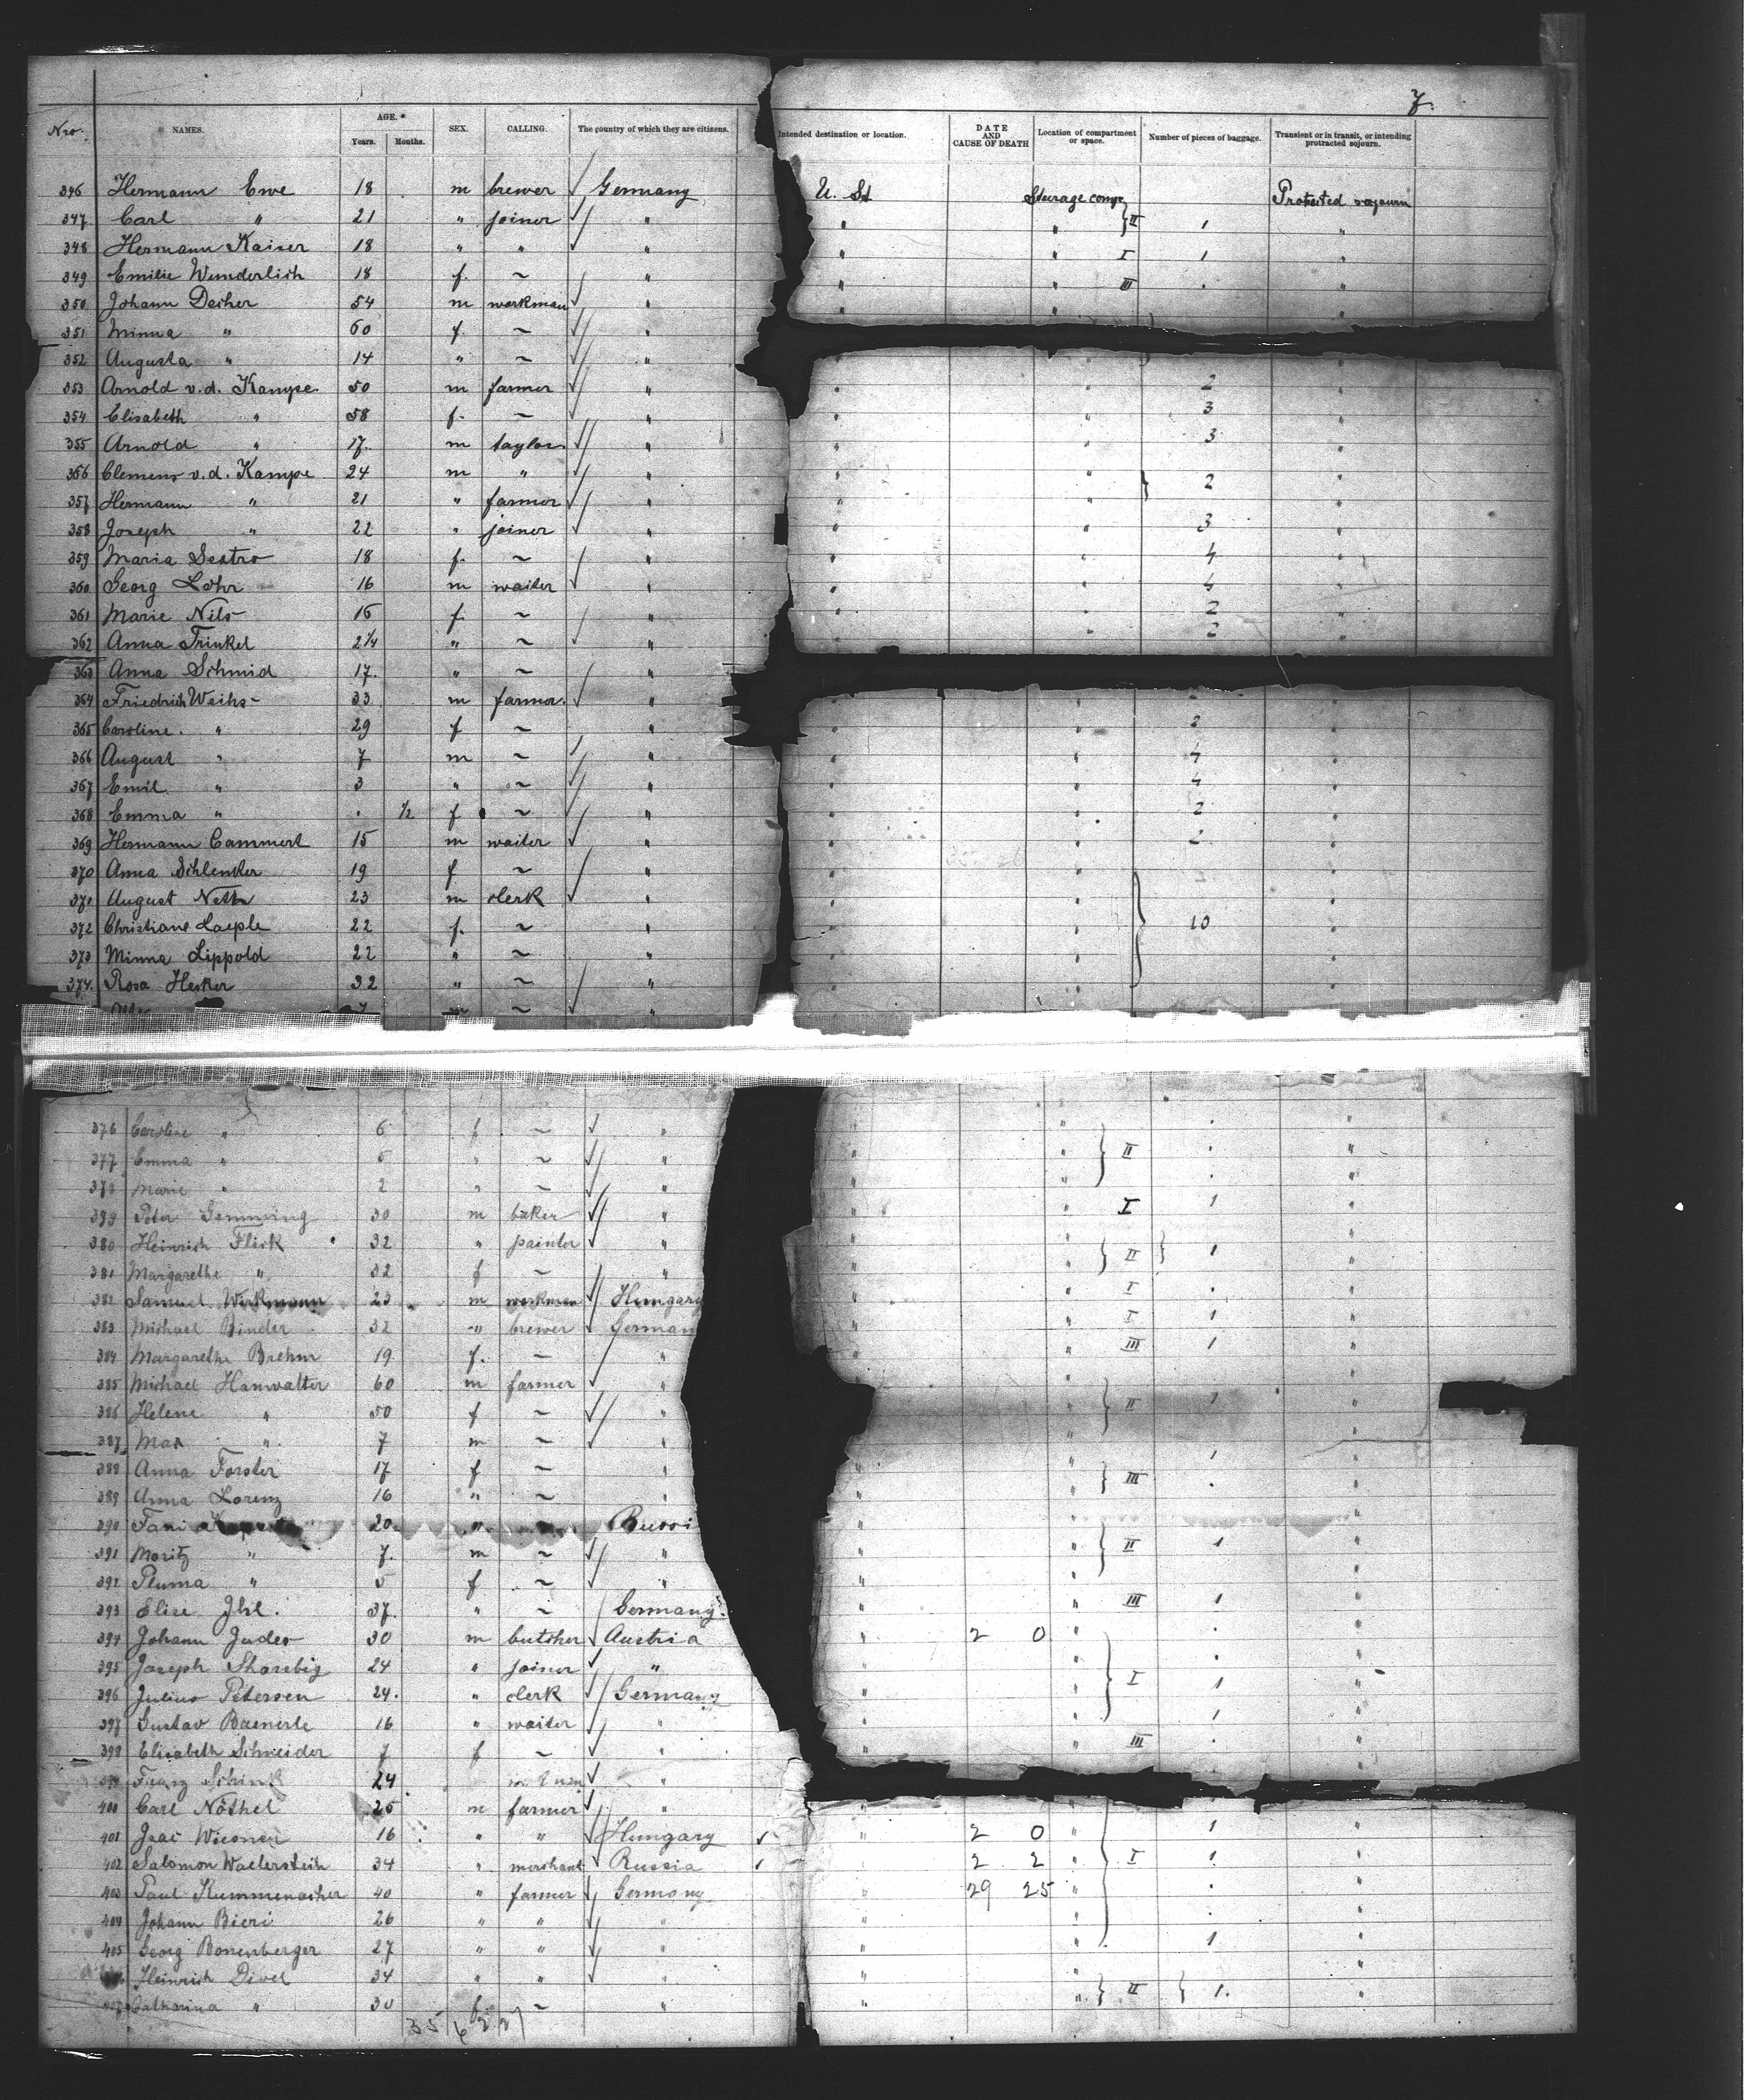 7.
Nro. NAMES. AGE. Years. Months. SEX. CALLING. The country of which they are citizens. Intended destination or location. DATE AND CAUSE OF DEATH Location of compartment or space. Number of pieces of baggage. Transient or in transit, or intending protracted sojourn.
346 Hermann Ewe 18 m brewer Germany U. St Steerage comp Protracted sojourn
347 Carl " 21 " joiner " " " II 1 "
348 Hermann Kaiser 18 " " " " " I 1 "
349 Emilie Wunderlich 18 f. ~ " " " III "
350 Johann Decher 54 m workman " " " "
351 Minna " 60 f. ~ "
352 Augusta " 14 " ~ " "
353 Arnold v.d. Kampe 50 m farmer " " 2 "
354 Elisabeth " 58 f. ~ " " " 3 "
355 Arnold " 17. m taylor " " 3 "
356 Clemens v.d. Kampe 24 m " " " " 2 "
357 Hermann " 21 " farmer " " " "
358 Joseph " 22 " joiner " " " 3 "
359 Maria Sestro 18 f. ~ " " " 4 "
360 Georg Löhr 16 m waiter " " " 4 "
361 Marie Nils 16 f ~ " " " 2 "
362 Anna Trinkel 2 1/4 " ~ " " " 2 "
363 Anna Schmid 17. " ~ "
364 Friedrich Weihs 33 m farmer. " " " "
365 Caroline. " 29 f ~ " " " 2 "
366 August " 7 m ~ " " " 4 "
367 Emil " 3 " ~ " " " 4 "
368 Emma " 1/2 f ~ " " " 2 "
369 Hermann Cammert 15 m waiter " " " 2 "
370 Anna Schlenker 19 f ~ " " " "
371 August Neth 23 m clerk " " " "
372 Christiane Laeple 22 f. ~ " " " 10 "
373 Minna Lippold 22 " ~ " " " "
374. Rosa Hesker 32 " ~ " " " "
7 m ~ "
376 Caroline " 6 f ~ " " "
377 Emma " 5 " ~ " " " II "
378 Marie " 2 " ~ " " " "
379 Peter Gemming 30 m baker " " I 1 "
380 Heinrich Flick 32 " painter " " " II 1 "
381 Margarethe " 32 f ~ " " " "
382 Samuel Workmann 23 m workman Hungary " " I "
383 Michael Binder 32 " brewer German " " I 1 "
384 Margarethe Brehm 19 f. ~ " " " III 1 "
385 Michael Hanwalter 60 m farmer " " " "
386 Helene " 50 f ~ " " " II 1 "
387 Max " 7 m ~ " " " "
388 Anna Forster 17 f ~ " " " 1 "
389 Anna Lorenz 16 " ~ " " " III "
390 Fani 20 " Russi " "
391 Moritz " 7. m ~ " " " II 1 "
392 Pluma " 5 f ~ " " " "
393 Elise Ihl. 37. " ~ Germany. " " III 1 "
394 Johann Judes 30 m butcher Austria " 2 0 " "
395 Joseph Sharebig 24 " joiner " " " "
396 Julius Petersen 24. " clerk Germany " " I 1 "
397 Gustav Baenerle 16 " waiter " " " 1 "
398 Elisabeth Schneider 7 f ~ " " " III "
399 Franz Schink 24 "
400 Carl Nöthel 25 m farmer " " "
401 Isac Wiesner 16 " " Hungary " 2 0 " 1 "
402 Salomon Wallerstein 34 " merchant Russia " 2 2 " I 1 "
403 Paul Kummenacher 40 " farmer Germany " 29 25 " "
404 Johann Bieri 26 " " " " " "
405 Georg Bonenberger 27 " " " " " 1 "
Heinrich Divel 34 " " " " " "
407 Catharina " 30 f ~ " " " II 1. "